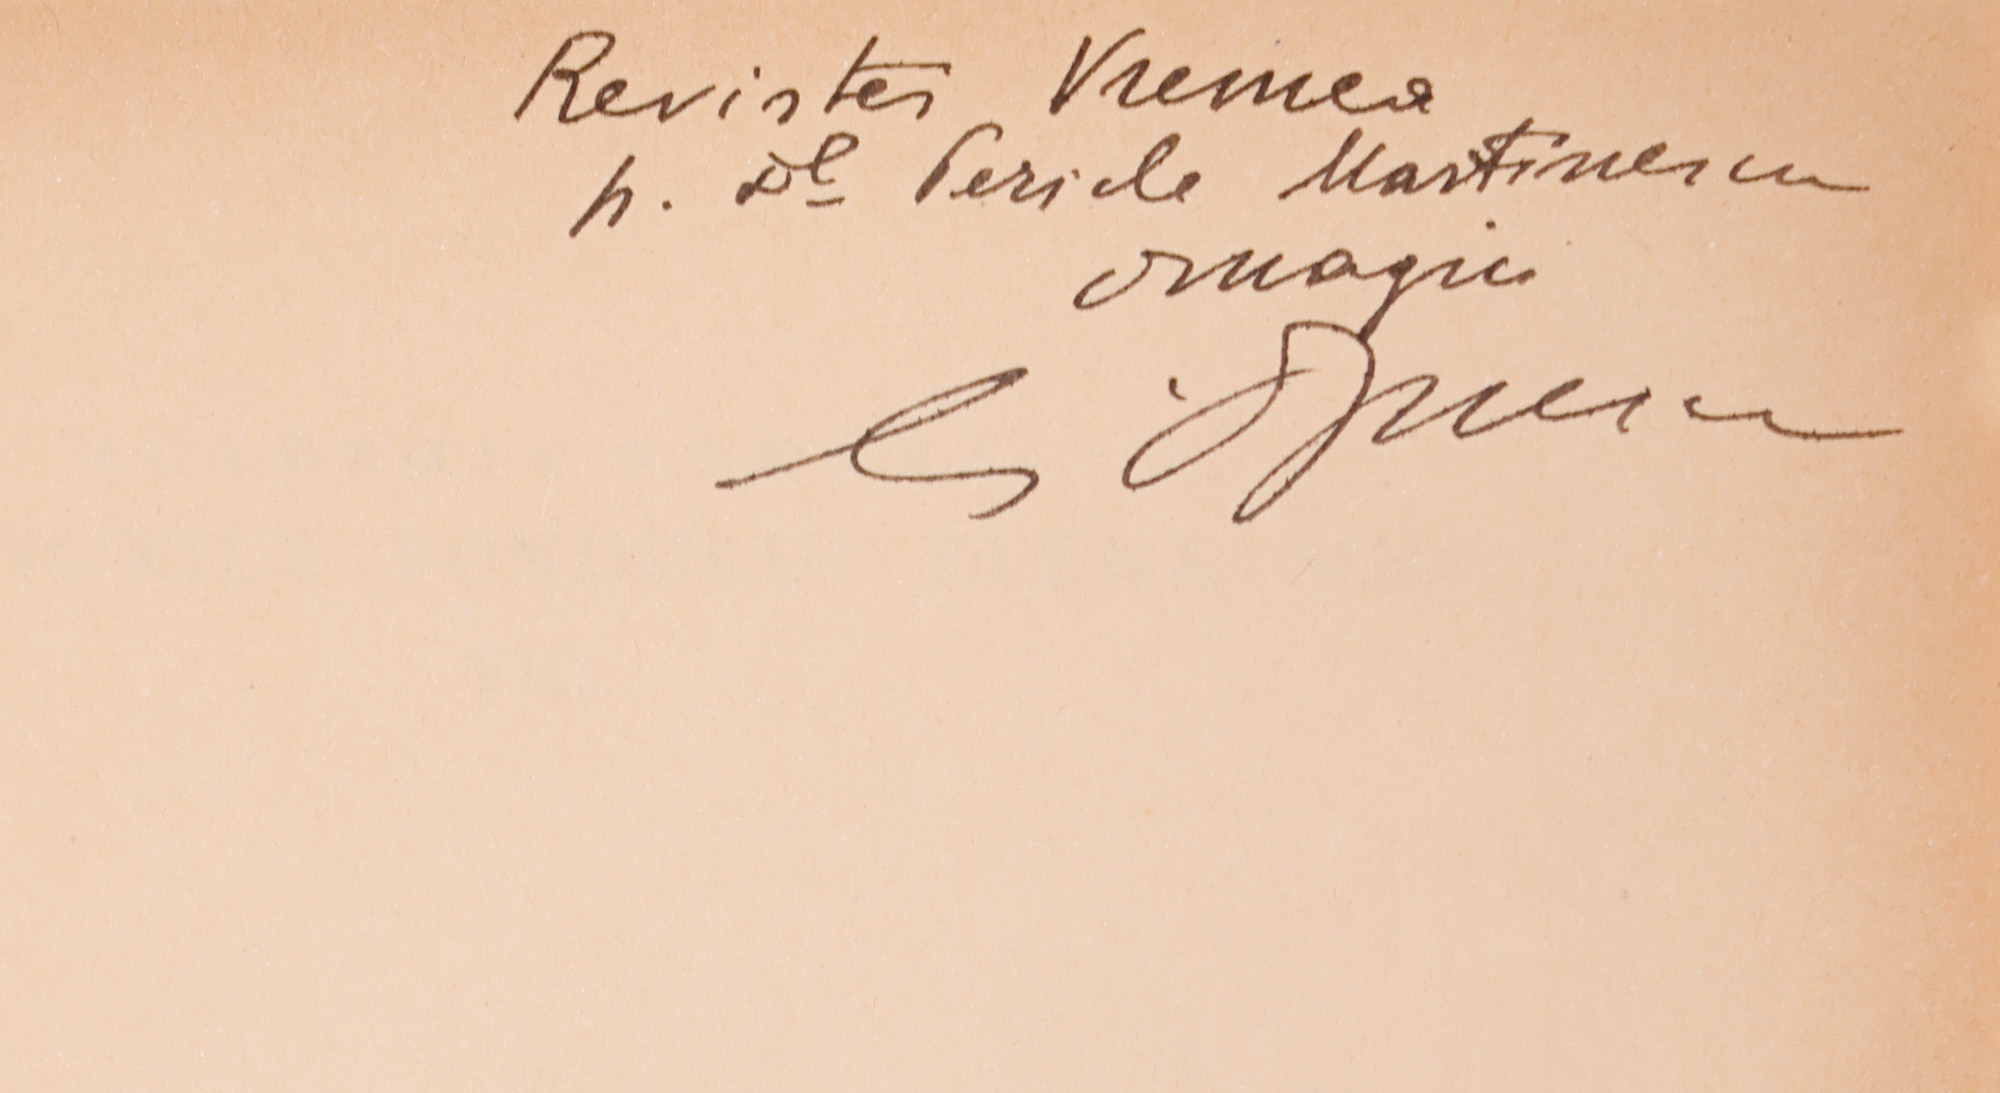 Revistei Vremea
p. Dl Pericle Martinescu
omagiu